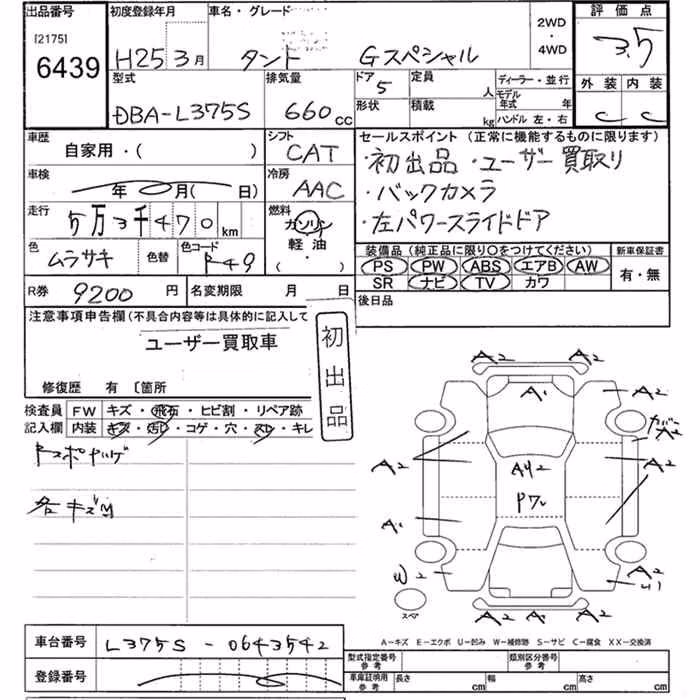 出品番号 初度登録年月 車名・グレード 2WD・4WD 評価点
[2175]
6439 H25 3月 タント Gスペシャル 3.5
型式 排気量 ドア 5 定員 人 ディーラー・並行 外装 内装
DBA-L375S 660cc 形状 積載 kg モデル年式 年 ハンドル 左・右 C C
車歴 自家用・( ) シフト CAT セールスポイント(正常に機能するものに限ります)
・初出品 ・ユーザー買取り
車検 年 月( 日) 冷房 AAC ・バックカメラ
走行 5万3千470km 燃料 ガソリン 軽油 ( ・ ) ・左パワースライドドア
色 ムラサキ 色替 色コード R49 装備品(純正品に限り〇をつけてください) 新車保証書
PS PW ABS エアB AW 有・無
SR ナビ TV カワ
R券 9200円 名変期限 月 日 後日品
注意事項申告欄(不具合内容等は具体的に記入して
ユーザー買取車 初出品
修復歴 有 〔箇所
検査員 FW キズ・飛石・ヒビ割・リペア跡
記入欄 内装 キズ・汚レ・コゲ・穴・スレ・キレ
各キズ凹
A2 A2
A1 A2
カバーA2
A2 A2
Aツ2
A1
W2 A2
U1
スペア A2 A1 A2
A-キズ E-エクボ U-凹み W-補修跡 S-サビ C-腐食 XX-交換済
車台番号 L375S - 0643542 型式指定番号 参考 類別区分番号 参考
登録番号 車庫証明用 参考 長さ cm 幅 cm 高さ cm